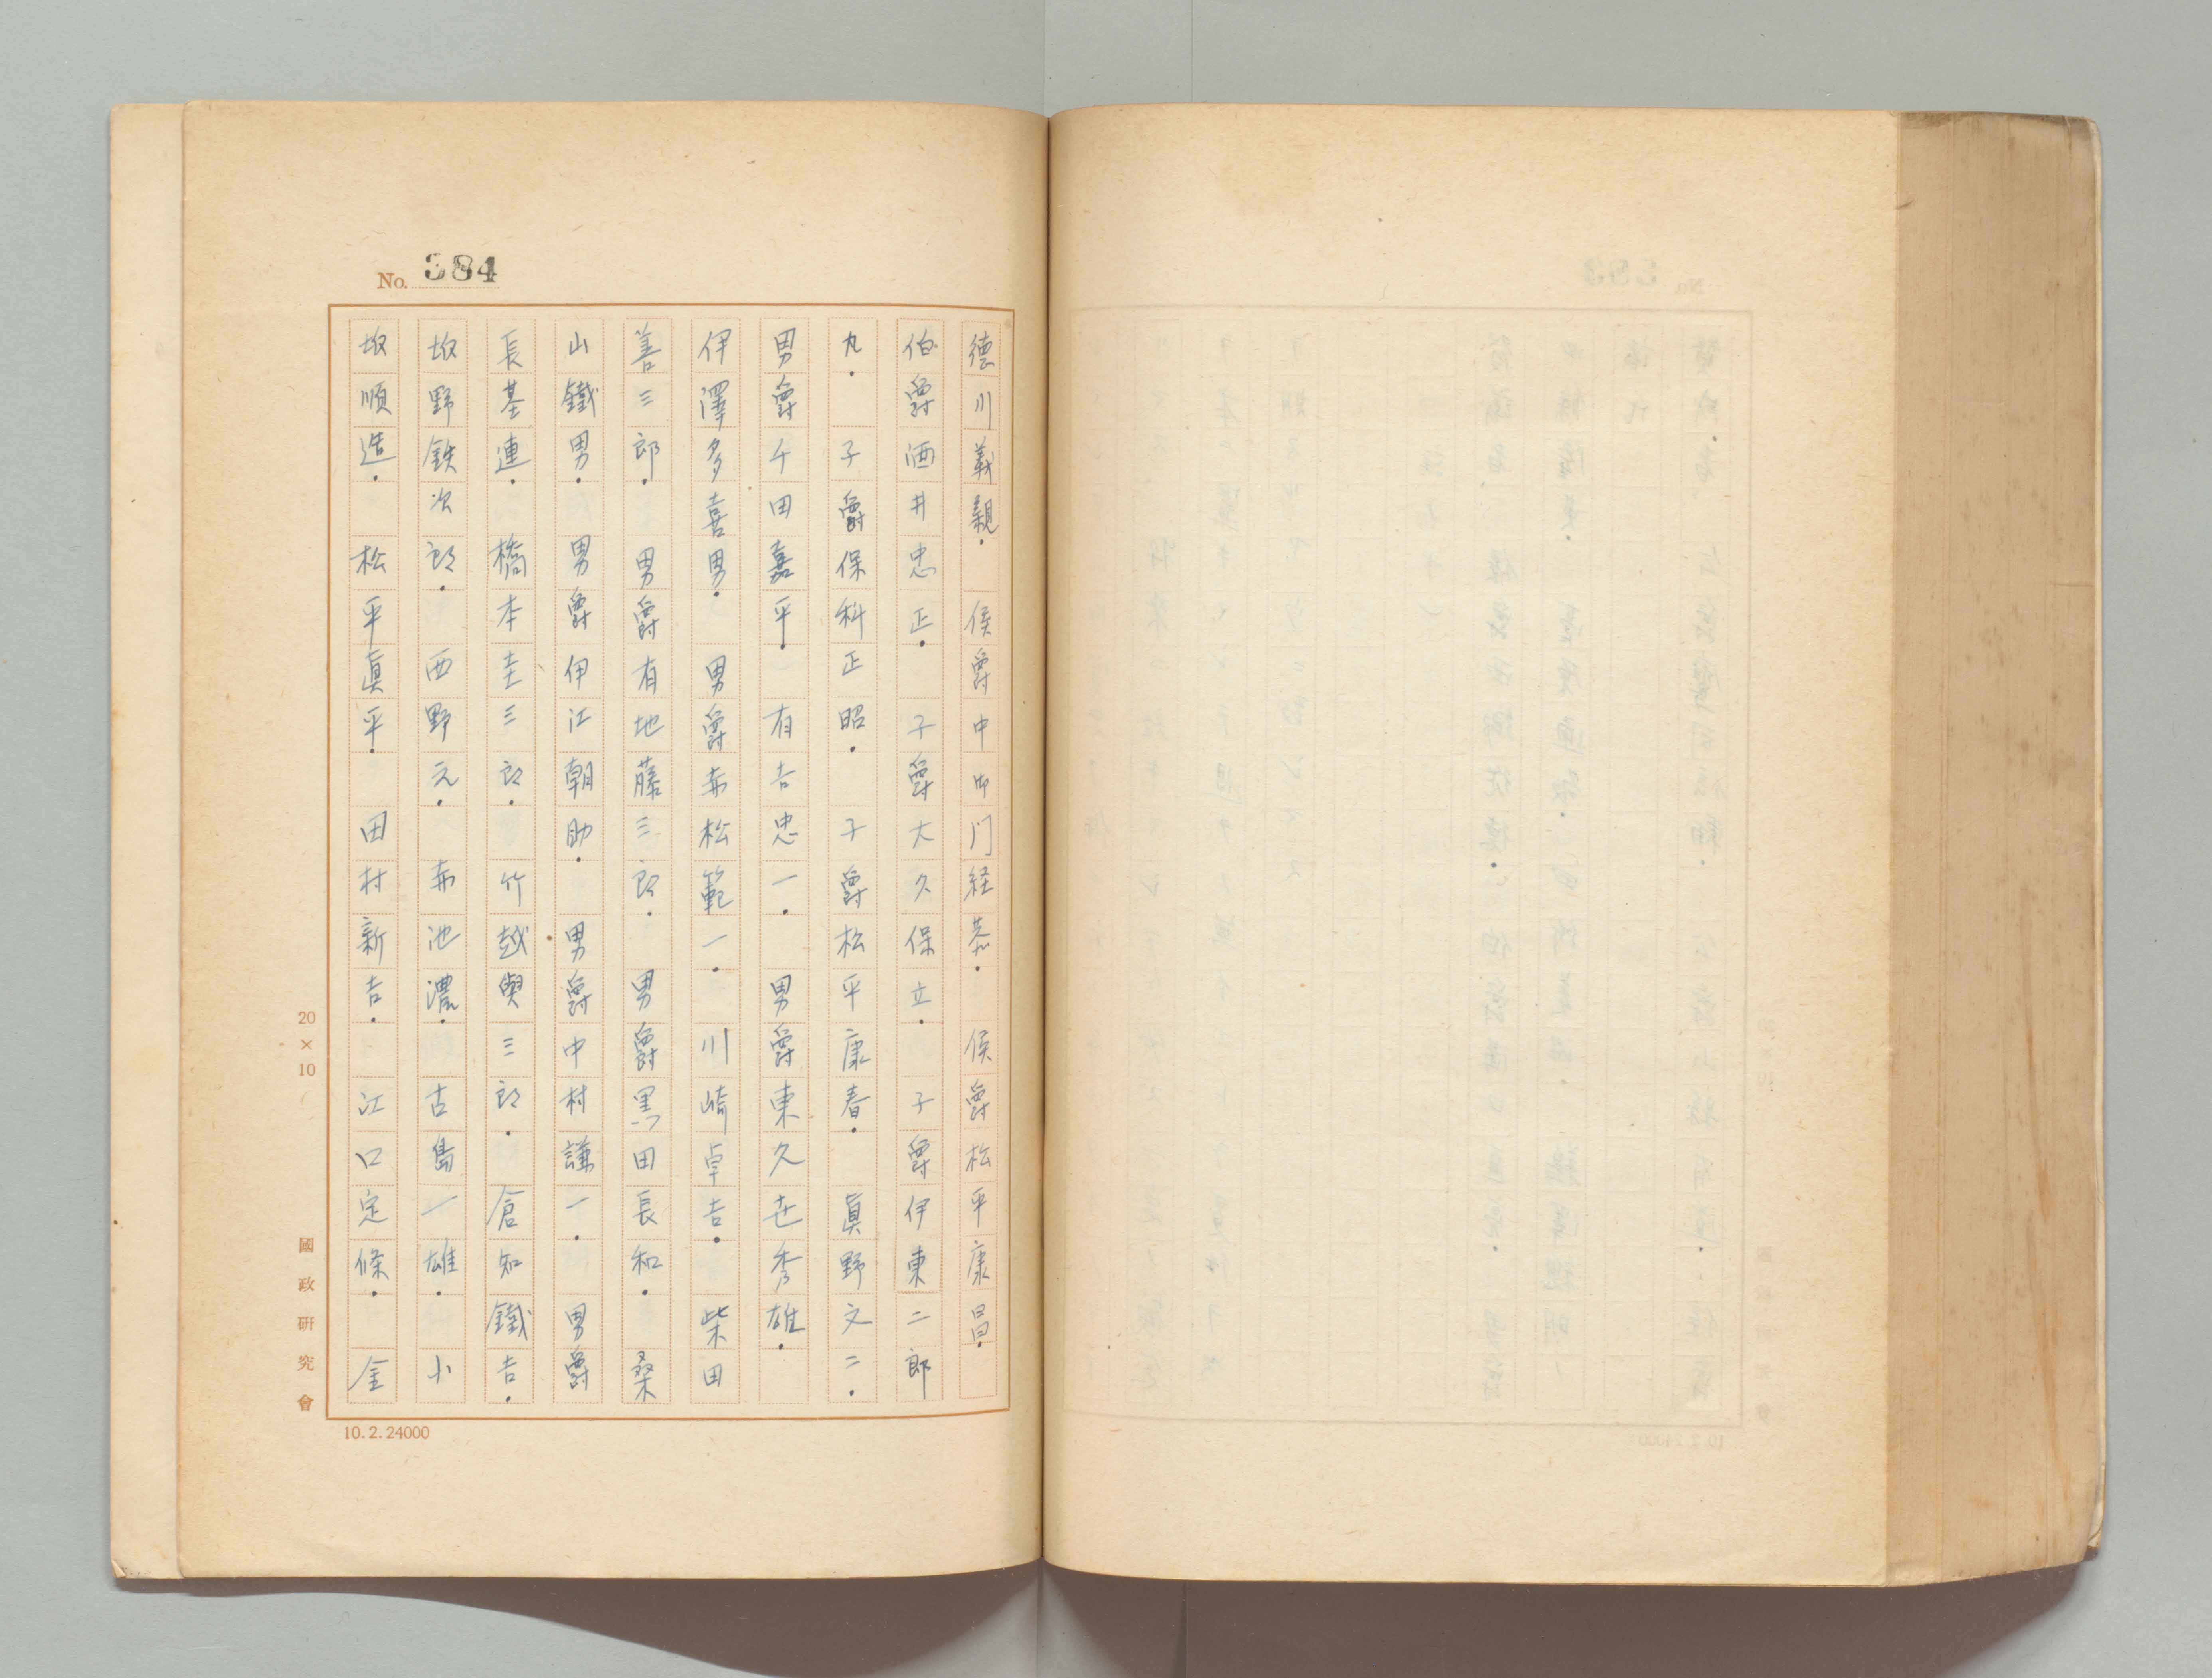 No. 384
德川義親． 侯爵中御门経恭． 侯爵松平康昌．
伯爵酒井忠正． 子爵大久保立． 子爵伊東二郎
丸． 子爵保科正昭． 子爵松平康春． 眞野文二．
男爵千田嘉平． 有吉忠一． 男爵東久世秀雄．
伊澤多喜男． 男爵赤松範一． 川崎卓吉． 柴田
善三郎． 男爵有地藤三郎． 男爵黒田長和． 桑
山鐵男． 男爵伊江朝助． 男爵中村謙一． 男爵
長基連． 橋本圭三郎． 竹越與三郎． 倉知鐵吉．
坂野鉄次郎． 西野元． 赤池濃． 古島一雄． 小
坂順造． 松平眞平． 田村新吉． 江口定條． 金
20×10
國政研究會
10.2.24000